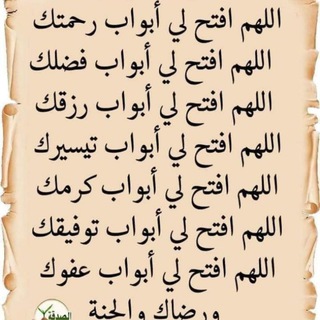 اللهم افتح لي أبواب رحمتك
اللهم افتح لي أبواب فضلك
اللهم افتح لي أبواب رزقك
اللهم افتح لي أبواب تيسيرك
اللهم افتح لي أبواب كرمك
اللهم افتح لي أبواب توفيقك
اللهم افتح لي أبواب عفوك
ورضاك والجنة
الصدقة